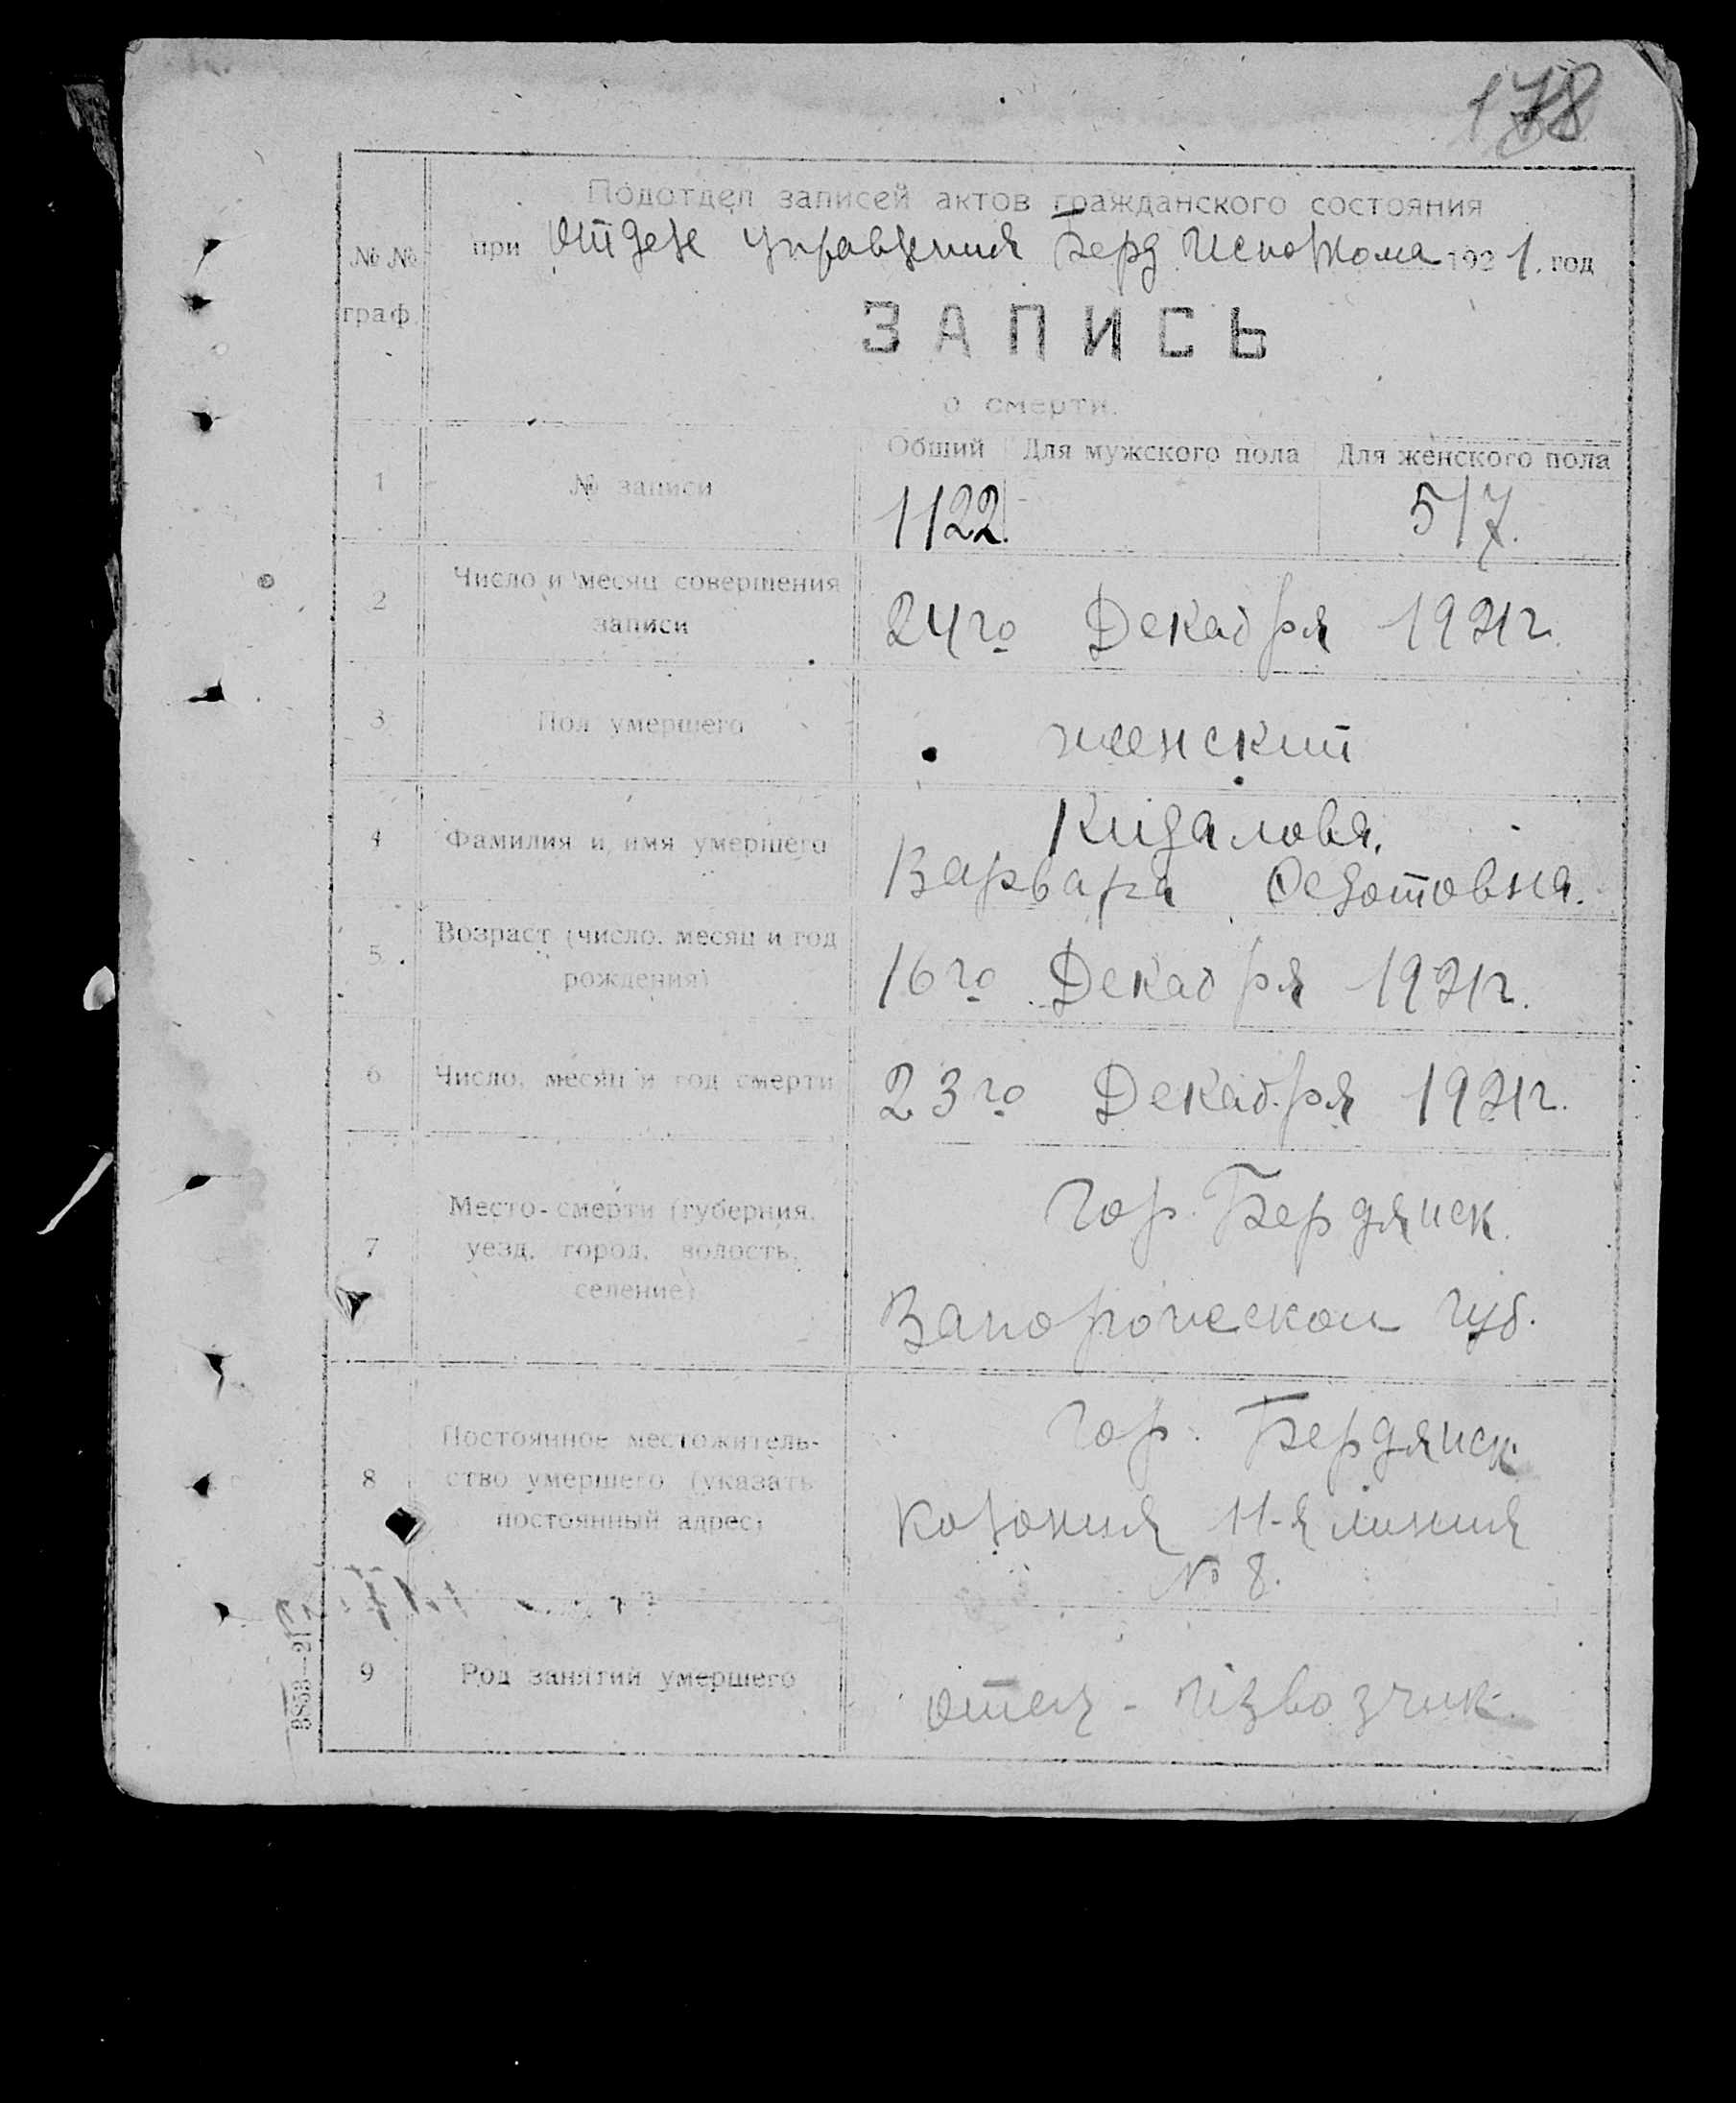 178
Подотдел записей актов гражданского состояния
№№ граф.
при Отделе Управления Берд. Исполкома 1921. год
ЗАПИСЬ
о смерти.
Общий Для мужского пола Для женского пола
1 № записи 1122. 517.
2 Число и месяц совершения
записи
24го Декабря 1921г.
3 Пол умершего женский
4 Фамилия и имя умершего Кидалова,
Варвара Федотовна.
5 Возраст (число, месяц и год
рождения)
16го Декабря 1921г.
6 Число, месяц и год смерти 23го Декабря 1921г.
7 Место смерти (губерния,
уезд, город, волость,
селение)
Гор. Бердянск.
Запорожской губ.
8 Постоянное местожитель-
ство умершего (указать
постоянный адрес)
Гор. Бердянск.
Колония 11-я линия
№ 8.
9 Род занятий умершего отец - извозчик.
9853—21